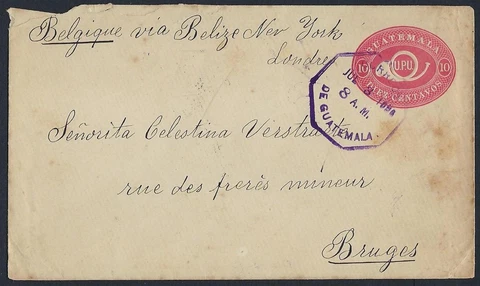 Belgique via Belize New York
Londres
GUATEMALA
10 U.P.U. 10
DIEZ CENTAVOS
JUL
8 A.M.
DE GUATEMALA
Señorita Celestina Verstraete
rue des frerés mineur
Bruges